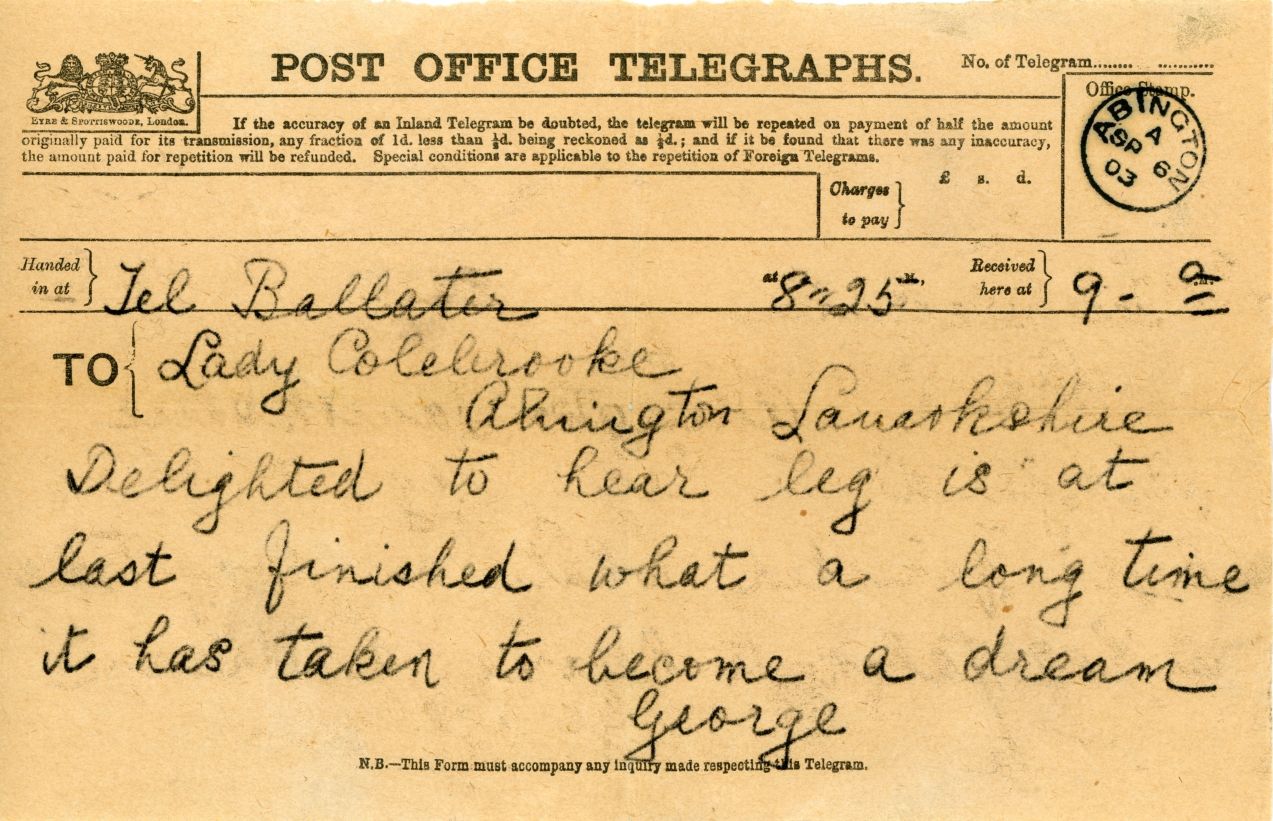 POST OFFICE TELEGRAPHS.
No. of Telegram........ ...........
EYRE & SPOTTISWOODE, LONDON.
Office Stamp.
ABINGTON
A
SP 6
03
If the accuracy of an Inland Telegram be doubted, the telegram will be repeated on payment of half the amount
originally paid for its transmission, any fraction of 1d. less than ½d. being reckoned as ½d.; and if it be found that there was any inaccuracy,
the amount paid for repetition will be refunded. Special conditions are applicable to the repetition of Foreign Telegrams.
Charges to pay } £ s. d.
Handed in at } Tel Ballater at 8 25 M., Received here at } 9 - a .M.
TO { Lady Colebrooke
Abington Lanarkshire
Delighted to hear leg is at
last finished what a long time
it has taken to become a dream
George
N.B.—This Form must accompany any inquiry made respecting this Telegram.